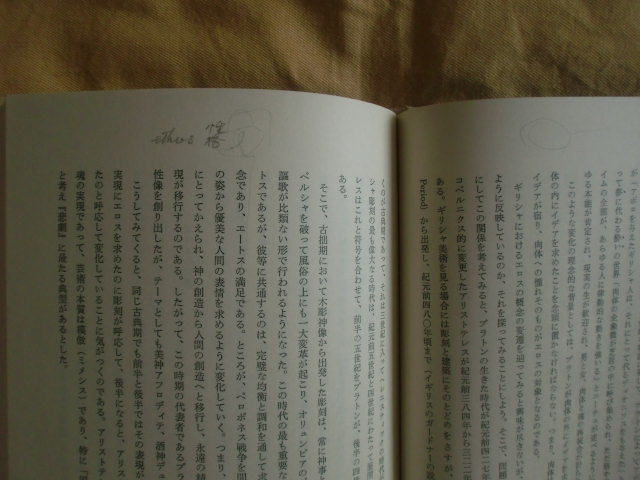 ethos 性格
がアポ
って夢に代わる
イムの全盛が、あらゆる人に
ゆる本能が肯定され、現実の生が歓迎され、男と女、
このような変化の理念的な背景としては、プラトンが肉体の外にイデアを
体の内にイデアを求めたことを念頭に置かなければならない。つまり、肉体
イデアが宿り、肉体への憧れそのものがエロスの対象となるのである。
ギリシャにおけるエロスの概念の変遷を辿ってみると興味が尽きないが、
ように反映しているのか、それを探ってみることにしよう。そこで、問題
にしてこの関係を考えてみると、プラトンの生きた時代が紀元前四二七年
コペルニクス的に変更したアリストテレスが紀元前三八四年から三二二年
ある。ギリシャ美術を見る場合には彫刻と建築にそのとどめをさすが、
Period) から出発し、紀元前四八〇年頃まで（イギリスのガードナーの説
くのが古典期であって、それは三世紀に入ってヘレニスティックの時代
シャ彫刻の最も偉大な時代は、紀元前五世紀と四世紀にわたって展開
レスはこれと符号を合わせて、前半の五世紀をプラトンが、後半の四
ある。
そこで、古拙期において木彫神像から出発した彫刻は、常に神事と
ペルシャを破って風俗の上にも一大変革が起こり、オリュンピアの
謳歌が比類ない形で行われるようになった。この時代の最も重要な
トスであるが、彼等に共通するのは、完璧な均衡と調和を通して求
念であり、エートスの満足である。ところが、ペロポネス戦争を間
の姿から優美な人間の表情を求めるように変化していく。つまり、
にとってかえられ、神の創造から人間の創造へと移行し、永遠の精
現が移行するのである。したがって、この時期の代表者であるプラ
性像を創り出したが、テーマとしても美神アフロディテ、酒神デュ
こうしてみてくると、同じ古典期でも前半と後半ではその表現が
実現にエロスを求めたのに彫刻が呼応して、後半になると、アリス
たのと呼応して変化していることに気がつくのである。アリストテ
魂の実現であって、芸術の本質は模倣（ミメシス）であり、特に『
と考え『悲劇』に最たる典型があるとした。